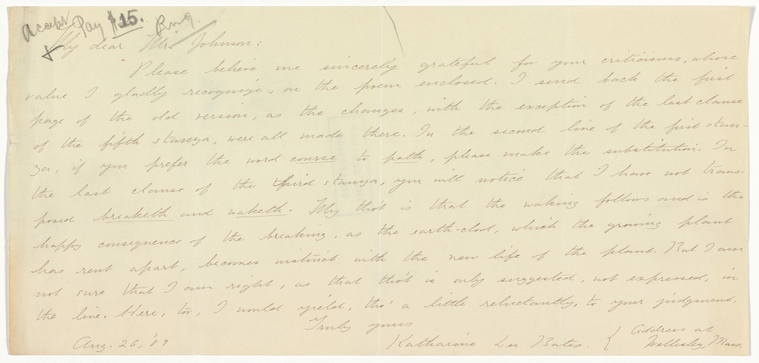 Accept Pay $15.
My dear Mr. Johnson:
Please believe me sincerely grateful for your criticisms, whose
value I gladly recognize, on the poem enclosed. I send back the first
page of the old version, as the changes, with the exception of the last clause
of the fifth stanza, were all made there. In the second line of the first stan-
za, if you prefer the word course to path, please make the substitution. In
the last clause of the third stanza, you will notice that I have not trans-
posed breaketh and waketh. My tho't is that the waking follows and is the
happy consequence of the breaking, as the earth-clod, which the growing plant
has rent apart, becomes instinct with the new life of the plant. But I am
not sure that I am right, as that tho't is only suggested, not expressed, in
the line. Here, too, I would yield, tho' a little reluctantly, to your judgment.
Truly yours
Katharine Lee Bates.
Aug. 26, '89
{ Address at
Wellesley, Mass.